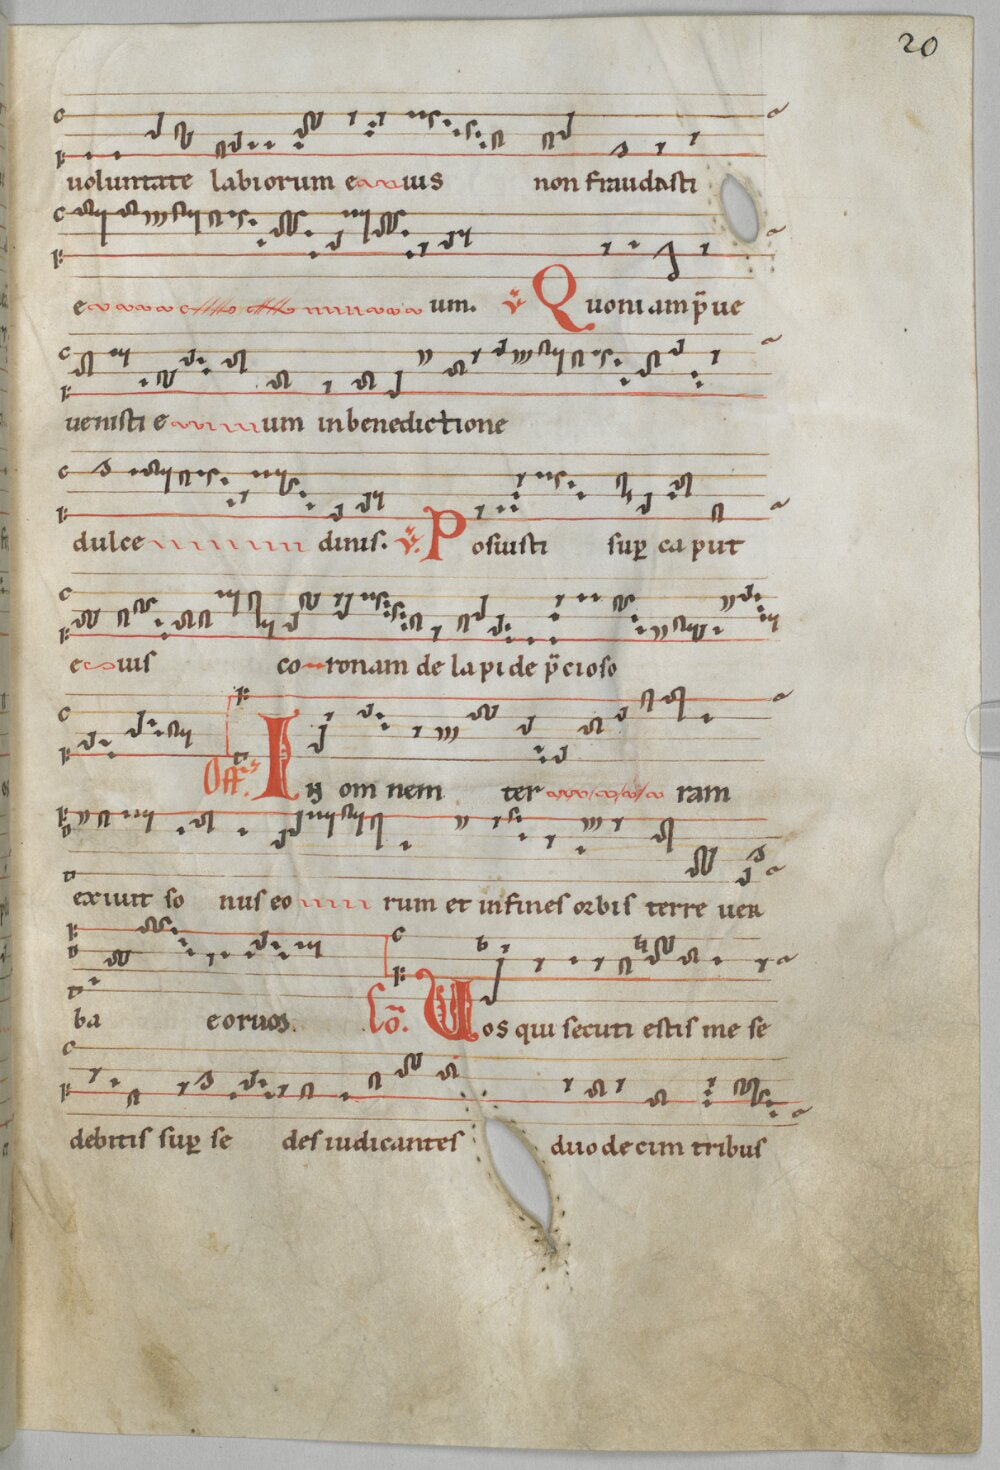 20
uoluntate labiorum eius non fraudasti
eum. v̄ Quoniam p̄ue
uenisti eum in benedictione
dulcedinis. v̄. Posuisti sup̱ caput
eius coronam de lapide p̄cioso
Off. In omnem terram
exiuit sonus eorum et in fines orbis terre uer
ba eorum. Cō. Uos qui secuti estis me se
debitis sup̱ sedes iudicantes duodecim tribus